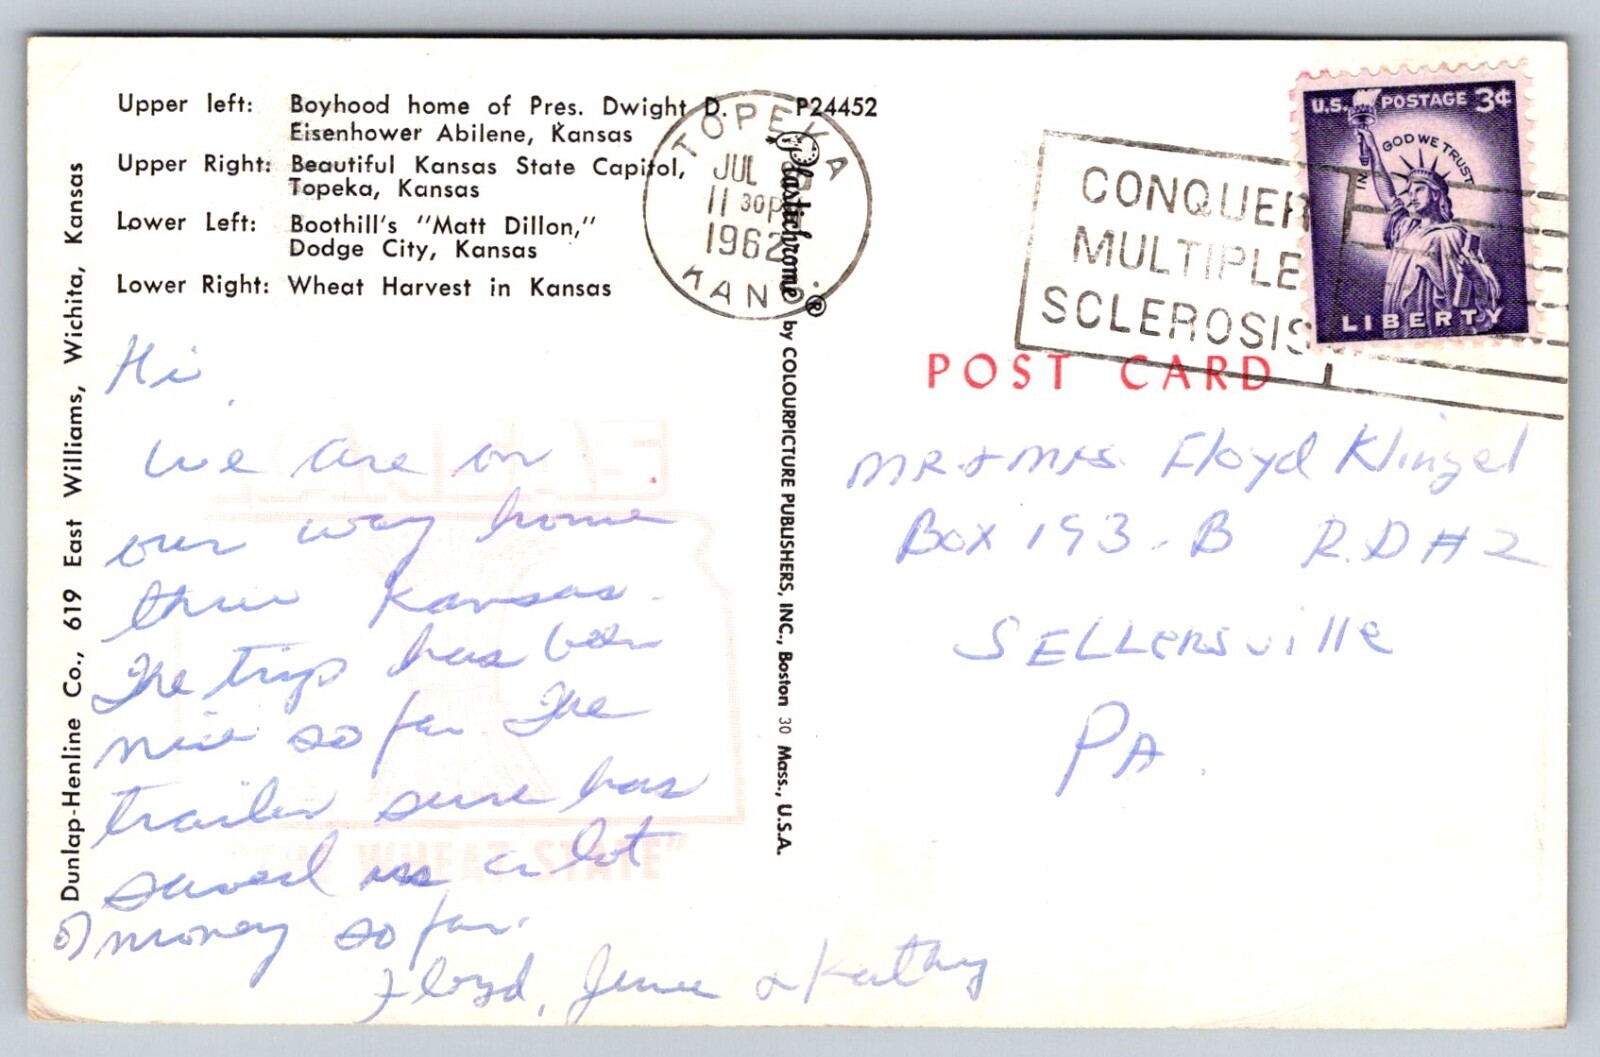 Upper left: Boyhood home of Pres. Dwight D. P24452
Eisenhower Abilene, Kansas
Upper Right: Beautiful Kansas State Capitol,
Topeka, Kansas
Lower Left: Boothill's "Matt Dillon,"
Dodge City, Kansas
Lower Right: Wheat Harvest in Kansas
Dunlap-Henline Co., 619 East Williams, Wichita, Kansas
TOPEKA
JUL
11 30 P
1962
KANS.
Plastichrome® by COLOURPICTURE PUBLISHERS, INC., Boston 30 Mass., U.S.A.
CONQUER
MULTIPLE
SCLEROSIS
U.S. POSTAGE 3¢
IN GOD WE TRUST
LIBERTY
POST CARD
Hi
We are on
our way home
thru Kansas.
The trip has been
nice so far. The
trailer sure has
saved us a lot
of money so far.
Floyd, June & Kathy
MR & MRS. Floyd Klingel
Box 193-B R.D #2
SELLERSville
PA.
KANSAS
"THE WHEAT STATE"